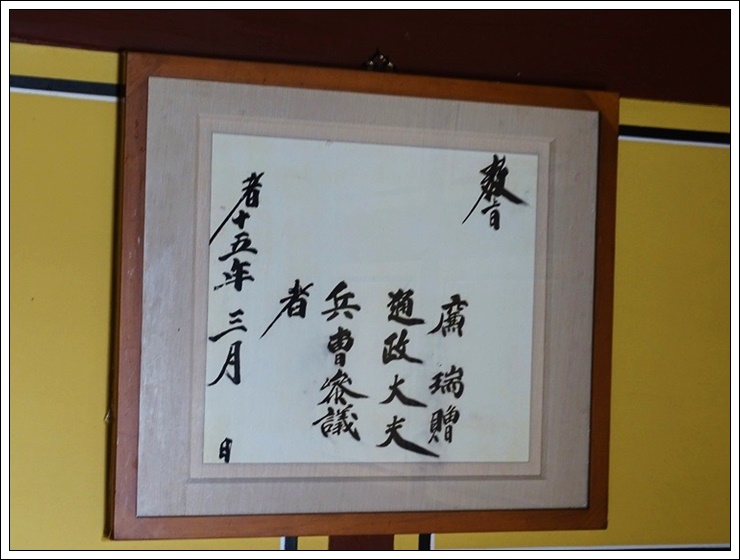 敎旨
廉 瑞 贈
通政大夫
兵曹參議
者
者十五年 三月 日